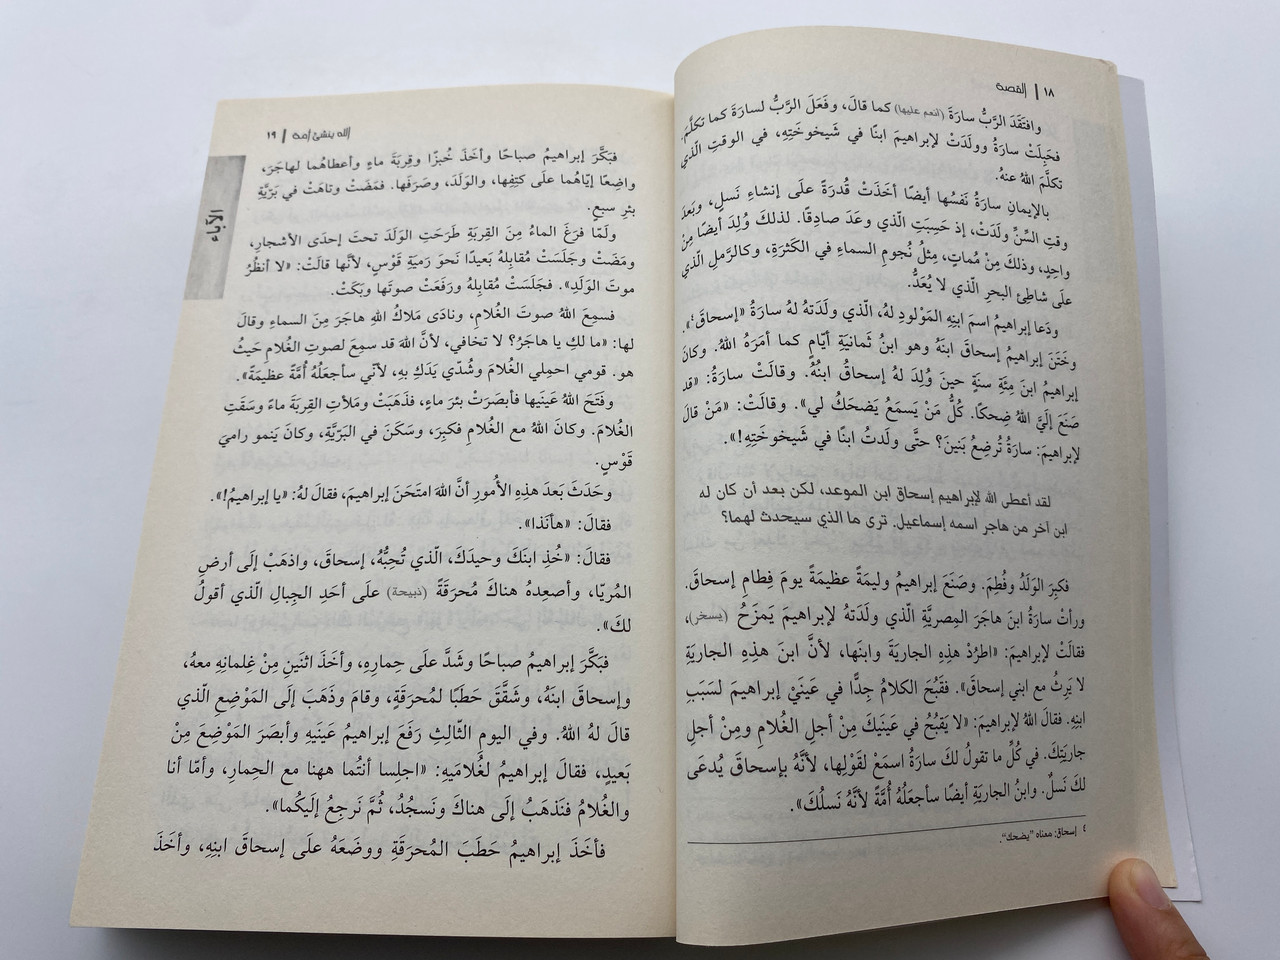 ١٨ | القصة
وافتَقَدَ الرَّبُّ سارَةَ (أنعم عليها) كما قالَ، وفَعَلَ الرَّبُّ لسارَةَ كما تكلَّمَ.
فحَبِلَتْ سارَةُ وولَدَتْ لإبراهيمَ ابنًا في شَيخوخَتِهِ، في الوقتِ الّذي
تكلَّمَ اللهُ عنهُ.
بالإيمانِ سارَةُ نَفسُها أيضًا أخَذَتْ قُدرَةً علَى إنشاءِ نَسلٍ، وبَعدَ
وقتِ السِّنِّ ولَدَتْ، إذ حَسِبَتِ الّذي وعَدَ صادِقًا. لذلكَ وُلِدَ أيضًا مِنْ
واحِدٍ، وذلكَ مِنْ مُماتٍ، مِثلُ نُجومِ السماءِ في الكَثرَةِ، وكالرَّملِ الّذي
علَى شاطئِ البحرِ الّذي لا يُعَدُّ.
ودَعا إبراهيمُ اسمَ ابنِهِ المَوْلودِ لهُ، الّذي ولَدَتهُ لهُ سارَةُ «إسحاقَ٤».
وخَتَنَ إبراهيمُ إسحاقَ ابنَهُ وهو ابنُ ثمانيَةِ أيّامٍ كما أمَرَهُ اللهُ. وكانَ
إبراهيمُ ابنَ مِئَةِ سنَةٍ حينَ وُلِدَ لهُ إسحاقُ ابنُهُ. وقالَتْ سارَةُ: «قد
صَنَعَ إلَيَّ اللهُ ضِحكًا. كُلُّ مَنْ يَسمَعُ يَضحَكُ لي». وقالَتْ: «مَنْ قالَ
لإبراهيمَ: سارَةُ تُرضِعُ بَنينَ؟ حتَّى ولَدتُ ابنًا في شَيخوخَتِهِ!».
لقد أعطى الله لإبراهيم إسحاق ابن الموعد، لكن بعد أن كان له
ابن آخر من هاجر اسمه إسماعيل. ترى ما الذي سيحدث لهما؟
فكبِرَ الوَلَدُ وفُطِمَ. وصَنَعَ إبراهيمُ وليمَةً عظيمَةً يومَ فِطامِ إسحاقَ.
ورأتْ سارَةُ ابنَ هاجَرَ المِصريَّةِ الّذي ولَدَتهُ لإبراهيمَ يَمزَحُ (يسخر)،
فقالَتْ لإبراهيمَ: «اطرُدْ هذِهِ الجاريَةَ وابنَها، لأنَّ ابنَ هذِهِ الجاريَةِ
لا يَرِثُ مع ابني إسحاقَ». فقَبُحَ الكلامُ جِدًّا في عَينَيْ إبراهيمَ لسَبَبِ
ابنِهِ. فقالَ اللهُ لإبراهيمَ: «لا يَقبُحُ في عَينَيكَ مِنْ أجلِ الغُلامِ ومِنْ أجلِ
جاريَتِكَ. في كُلِّ ما تقولُ لكَ سارَةُ اسمَعْ لقَوْلِها، لأنَّهُ بإسحاقَ يُدعَى
لكَ نَسلٌ. وابنُ الجاريَةِ أيضًا سأجعَلُهُ أُمَّةً لأنَّهُ نَسلُكَ».
٤ إسحاق: معناه "يضحك".
الله ينشئ أمة | ١٩
الآباء
فبَكَّرَ إبراهيمُ صباحًا وأخَذَ خُبزًا وقِربَةَ ماءٍ وأعطاهُما لهاجَرَ،
واضِعًا إيّاهُما علَى كتِفِها، والوَلَدَ، وصَرَفَها. فمَضَتْ وتاهَتْ في بَرّيَّةِ
بئرِ سبعٍ.
ولَمّا فرَغَ الماءُ مِنَ القِربَةِ طَرَحَتِ الوَلَدَ تحتَ إحدَى الأشجارِ،
ومَضَتْ وجَلَسَتْ مُقابِلهُ بَعيدًا نَحوَ رَميَةِ قَوْسٍ، لأنَّها قالَتْ: «لا أنظُرُ
موتَ الوَلَدِ». فجَلَسَتْ مُقابِلهُ ورَفَعَتْ صوتَها وبَكَتْ.
فسمِعَ اللهُ صوتَ الغُلامِ، ونادَى مَلاكُ اللهِ هاجَرَ مِنَ السماءِ وقالَ
لها: «ما لكِ يا هاجَرُ؟ لا تخافي، لأنَّ اللهَ قد سمِعَ لصوتِ الغُلامِ حَيثُ
هو. قومي احمِلي الغُلامَ وشُدّي يَدَكِ بهِ، لأنّي سأجعَلُهُ أُمَّةً عظيمَةً».
وفَتَحَ اللهُ عَينَيها فأبصَرَتْ بئرَ ماءٍ، فذَهَبَتْ ومَلأتِ القِربَةَ ماءً وسَقَتِ
الغُلامَ. وكانَ اللهُ مع الغُلامِ فكبِرَ، وسَكَنَ في البَرّيَّةِ، وكانَ يَنمو راميَ
قَوْسٍ.
وحَدَثَ بَعدَ هذِهِ الأُمورِ أنَّ اللهَ امتَحَنَ إبراهيمَ، فقالَ لهُ: «يا إبراهيمُ!».
فقالَ: «هأنَذا».
فقالَ: «خُذِ ابنَكَ وحيدَكَ، الّذي تُحِبُّهُ، إسحاقَ، واذهَبْ إلَى أرضِ
المُريّا، وأصعِدهُ هناكَ مُحرَقَةً (ذبيحة) علَى أحَدِ الجِبالِ الّذي أقولُ
لكَ».
فبَكَّرَ إبراهيمُ صباحًا وشَدَّ علَى حِمارِهِ، وأخَذَ اثنَينِ مِنْ غِلمانِهِ معهُ،
وإسحاقَ ابنَهُ، وشَقَّقَ حَطَبًا لمُحرَقَةٍ، وقامَ وذَهَبَ إلَى المَوْضِعِ الّذي
قالَ لهُ اللهُ. وفي اليومِ الثّالِثِ رَفَعَ إبراهيمُ عَينَيهِ وأبصَرَ المَوْضِعَ مِنْ
بَعيدٍ، فقالَ إبراهيمُ لغُلامَيهِ: «اجلِسا أنتُما ههنا مع الحِمارِ، وأمّا أنا
والغُلامُ فنَذهَبُ إلَى هناكَ ونَسجُدُ، ثُمَّ نَرجِعُ إلَيكُما».
فأخَذَ إبراهيمُ حَطَبَ المُحرَقَةِ ووضَعَهُ علَى إسحاقَ ابنِهِ، وأخَذَ